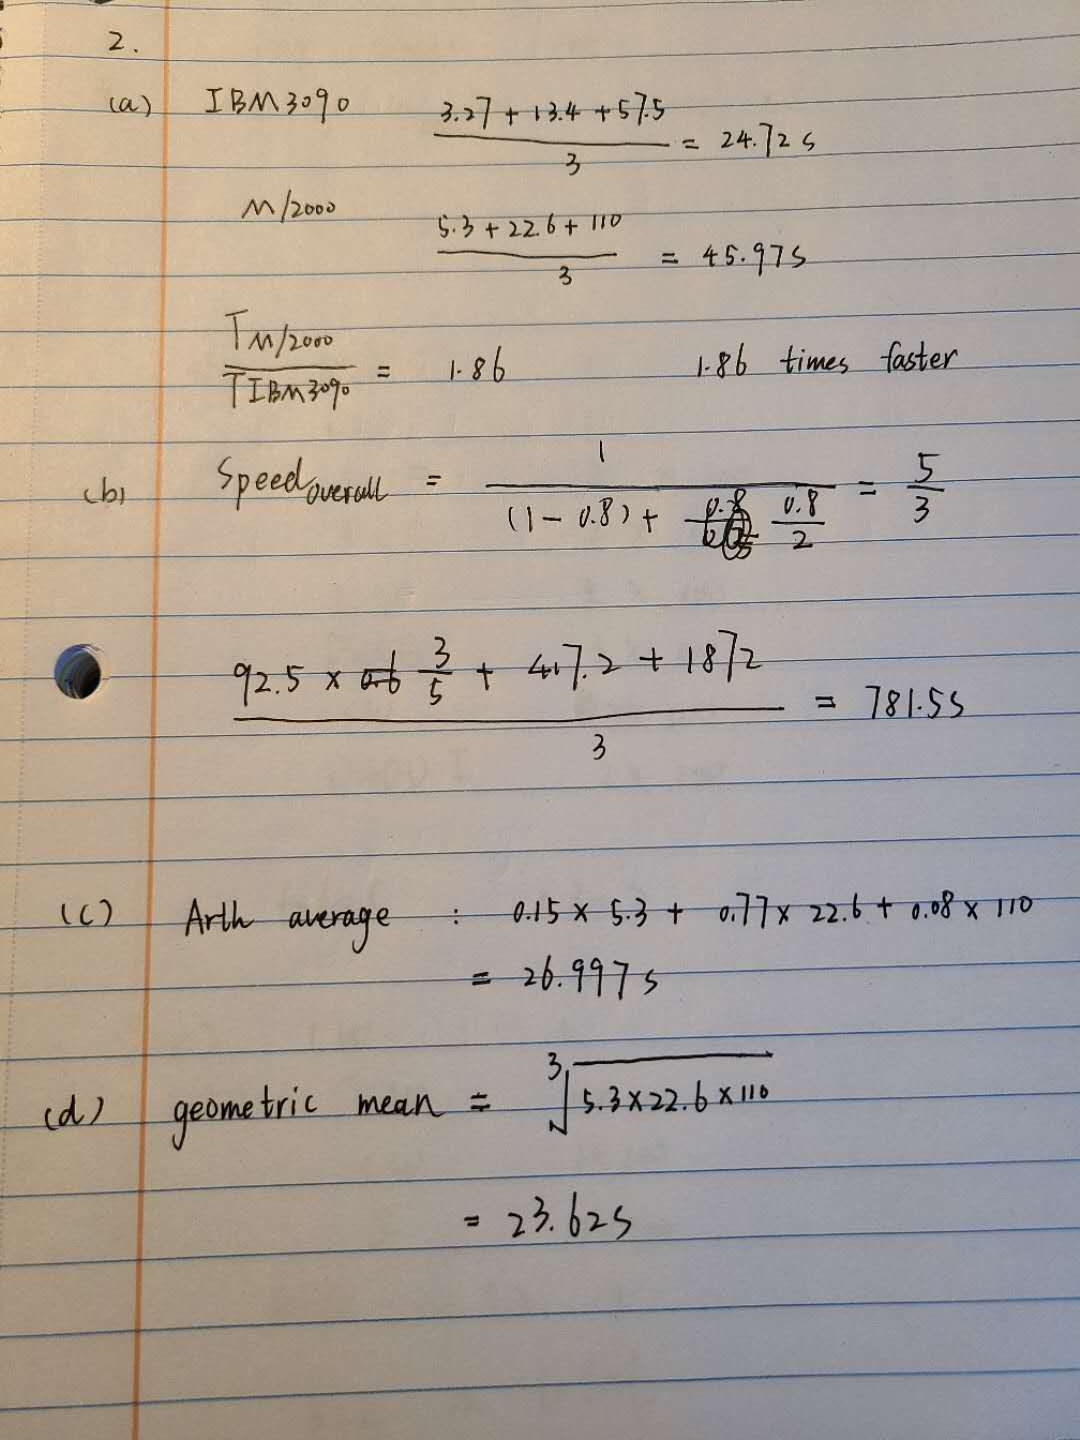 2.
(a) IBM3090 3.27 + 13.4 + 57.5 / 3 = 24.72 s
M/2000 5.3 + 22.6 + 110 / 3 = 45.97s
T M/2000 / T IBM3090 = 1.86 1.86 times faster
(b) Speed overall = 1 / (1 - 0.8) + 0.8 / 2 = 5/3
92.5 × 3/5 + 417.2 + 1872 / 3 = 781.5s
(c) Arth average : 0.15 × 5.3 + 0.77 × 22.6 + 0.08 × 110
= 26.997s
(d) geometric mean = ³√5.3×22.6×110
= 23.62s